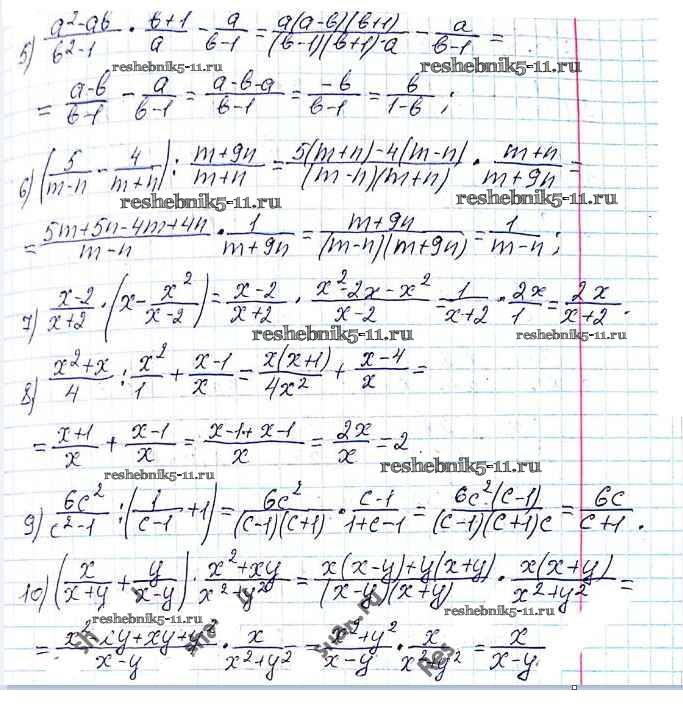 5) (a²-ab)/(b²-1) · (b+1)/a - a/(b-1) = (a(a-b)(b+1))/((b-1)(b+1)·a) - a/(b-1) =
reshebnik5-11.ru reshebnik5-11.ru
= (a-b)/(b-1) - a/(b-1) = (a-b-a)/(b-1) = (-b)/(b-1) = b/(1-b);
6) (5/(m-n) - 4/(m+n)) : (m+9n)/(m+n) = (5(m+n)-4(m-n))/((m-n)(m+n)) · (m+n)/(m+9n) =
reshebnik5-11.ru reshebnik5-11.ru
= (5m+5n-4m+4n)/(m-n) · 1/(m+9n) = (m+9n)/((m-n)(m+9n)) = 1/(m-n);
7) (x-2)/(x+2) · (x - x²/(x-2)) = (x-2)/(x+2) · (x²-2x-x²)/(x-2) = 1/(x+2) · 2x/1 = 2x/(x+2).
reshebnik5-11.ru reshebnik5-11.ru
8) (x²+x)/4 : x²/1 + (x-1)/x = (x(x+1))/(4x²) + (x-4)/x =
= (x+1)/x + (x-1)/x = (x-1+x-1)/x = 2x/x = 2
reshebnik5-11.ru reshebnik5-11.ru
9) 6c²/(c²-1) : (1/(c-1) + 1) = 6c²/((c-1)(c+1)) · (c-1)/(1+c-1) = (6c²(c-1))/((c-1)(c+1)c) = 6c/(c+1).
10) (x/(x+y) + y/(x-y)) · (x²+xy)/(x²+y²) = (x(x-y)+y(x+y))/((x-y)(x+y)) · (x(x+y))/(x²+y²) =
reshebnik5-11.ru reshebnik5-11.ru
= (x²-xy+xy+y²)/(x-y) · x/(x²+y²) = (x²+y²)/(x-y) · x/(x²+y²) = x/(x-y)